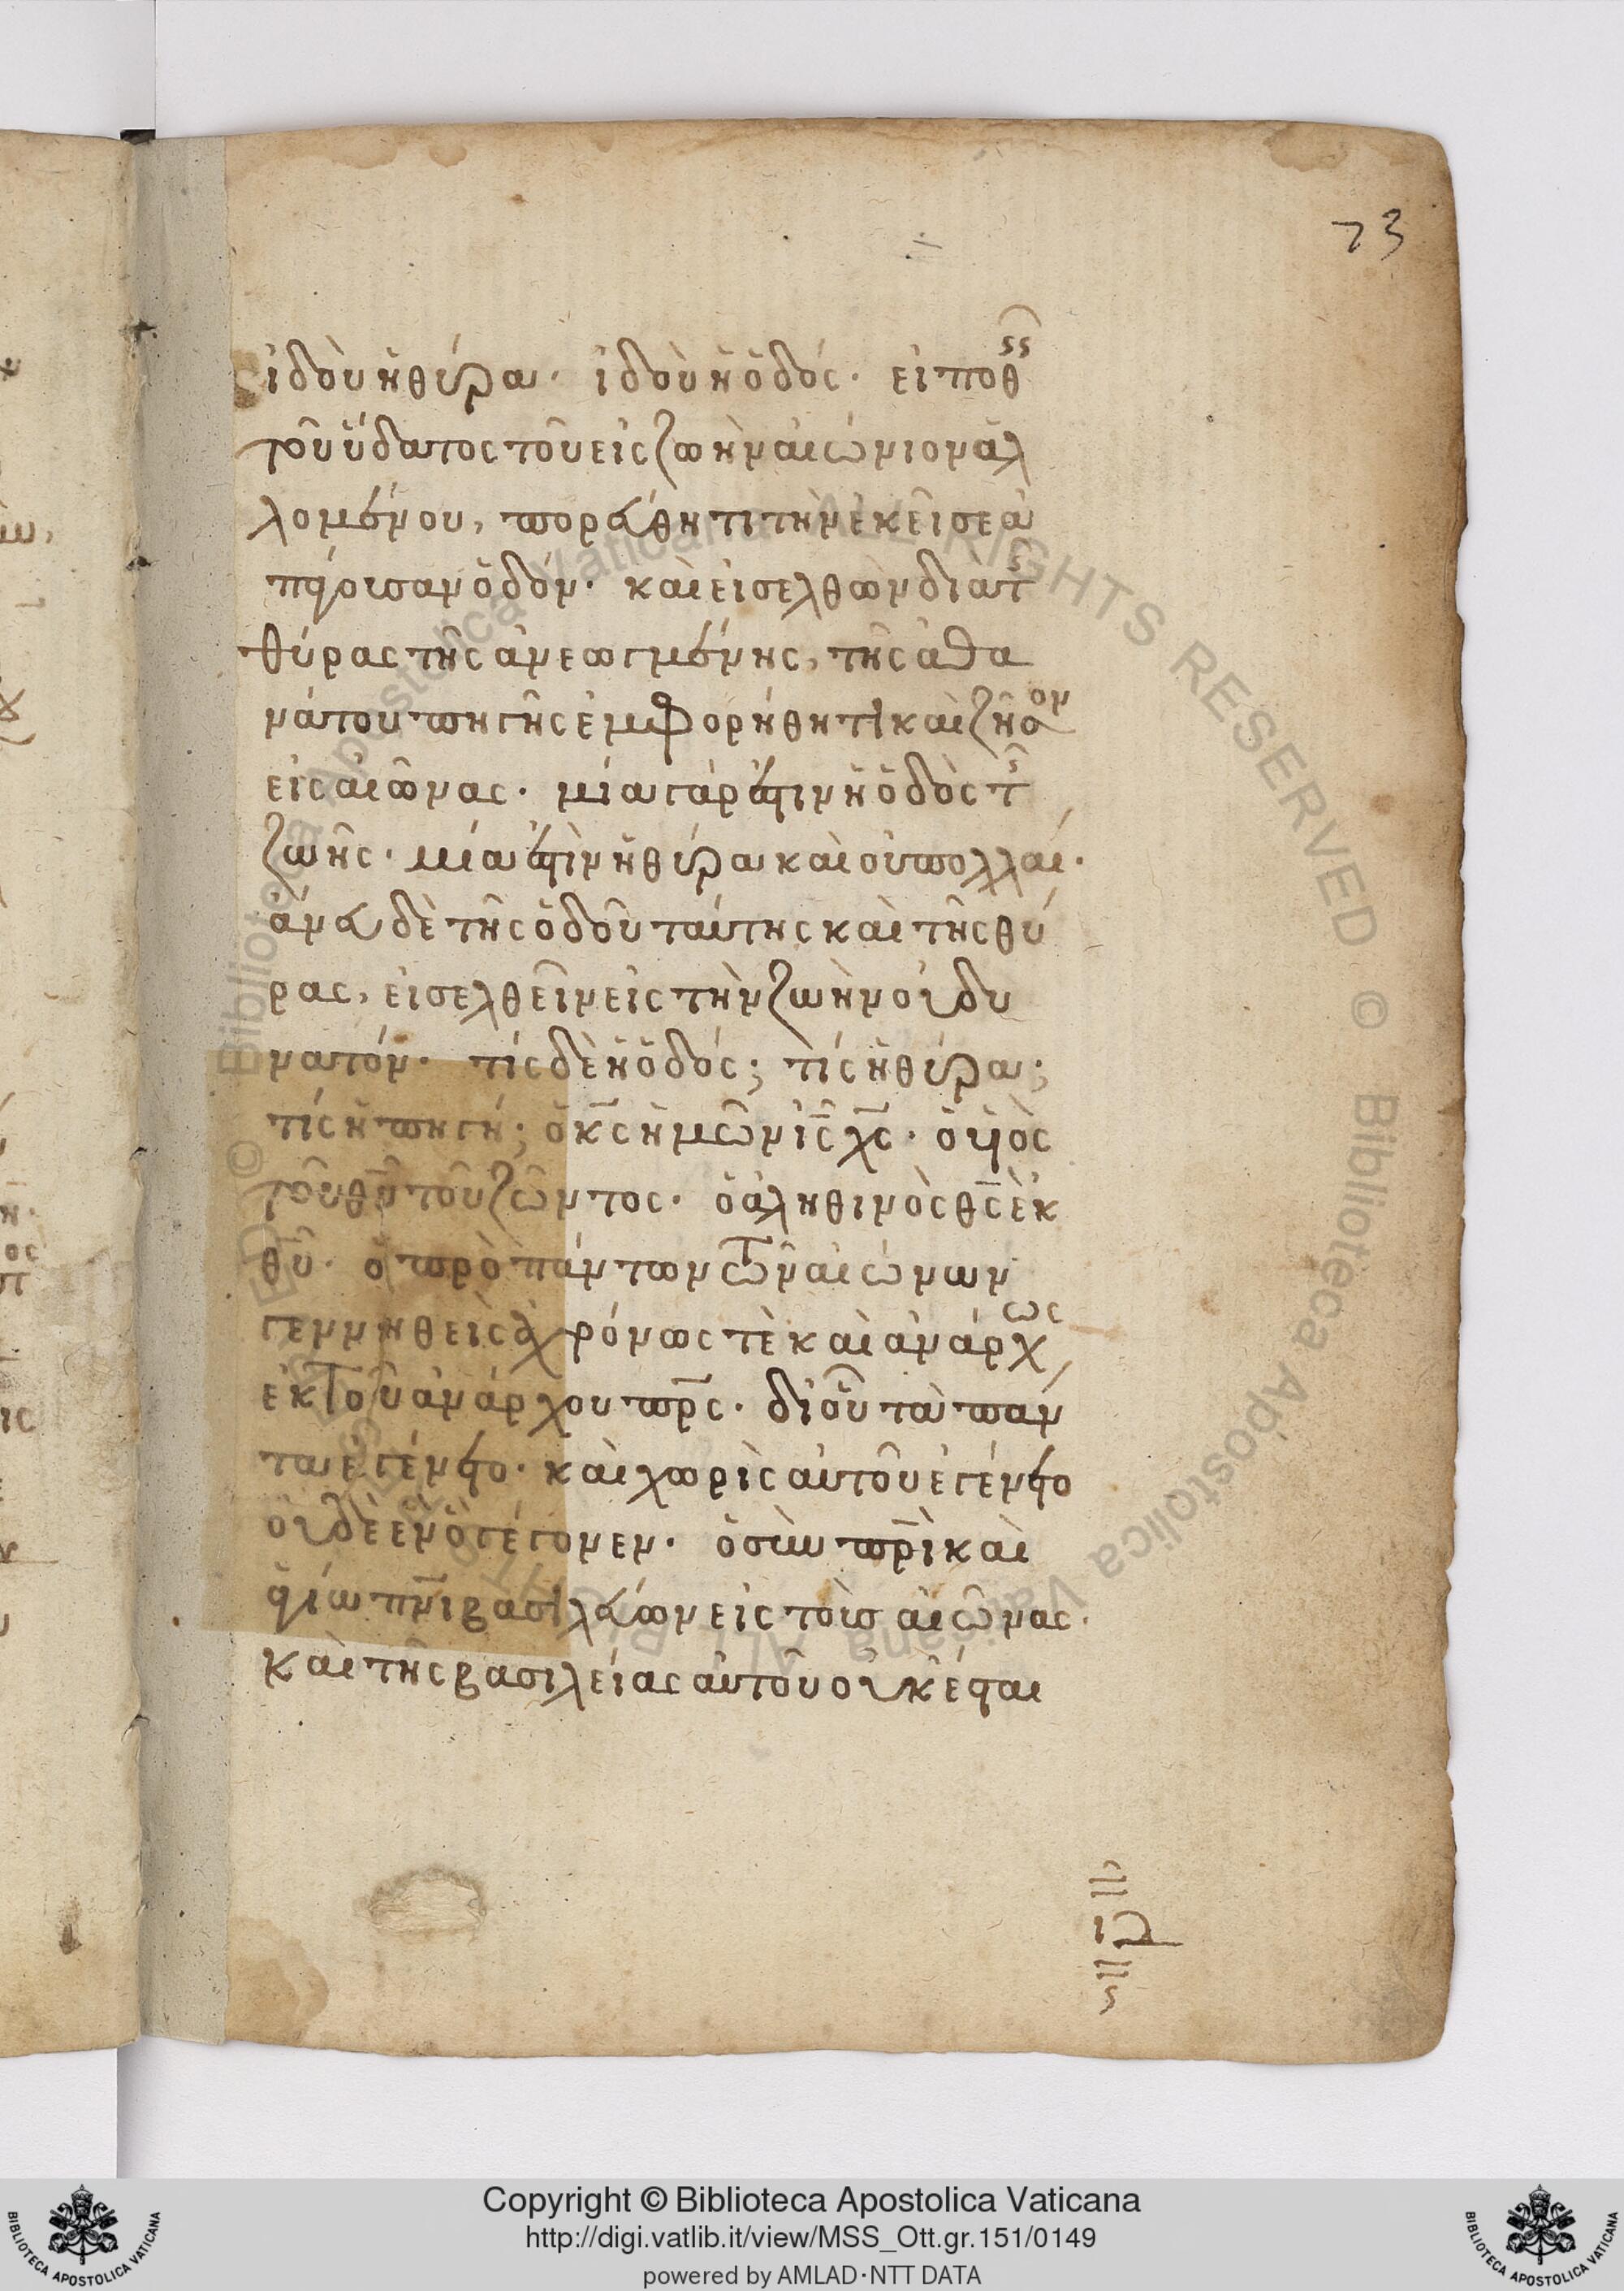 73
ἰδοὺ ἡ θύρα· ἰδοὺ ἡ ὁδός· εἰ ποθεῖς
τοῦ ὕδατος τοῦ εἰς ζωὴν αἰώνιον ἁλ
λομένου, πορεύθητι τὴν ἐκεῖσε ἀ
πφέρουσαν ὁδόν· καὶ εἰσελθὼν διὰ τῆς
θύρας τῆς ἀνεωγμένης, τῆς ἀθα
νάτου πηγῆς ἐμφορήθητι καὶ ζῆσον
εἰς αἰῶνας· μία γάρ ἐστιν ἡ ὁδὸς τῆς
ζωῆς· μία ἐστὶν ἡ θύρα καὶ οὐ πολλαί·
ἄνευ δὲ τῆς ὁδοῦ ταύτης καὶ τῆς θύ
ρας, εἰσελθεῖν εἰς τὴν ζωὴν οὐ δυ
νατόν· τίς δὲ ἡ ὁδός; τίς ἡ θύρα;
τίς ἡ πηγή; ὁ κς ἡμῶν ις χς· ὁ υἱὸς
τοῦ θυ τοῦ ζῶντος· ὁ ἀληθινὸς θς ἐκ
θυ· ὁ πρὸ πάντων τῶν αἰώνων
γεννηθεὶς ἀχρόνως τὲ καὶ ἀνάρχως
ἐκ τοῦ ἀνάρχου πρς· δι οὗ τὰ πάν
τα ἐγένετο· καὶ χωρὶς αὐτοῦ ἐγένετο
οὐδὲ ἓν ὃ γέγονεν· ὁ σὺν πρὶ καὶ
ἁγίω πνι βασιλεύων εἰς τοὺς αἰῶνας·
καὶ τῆς βασιλείας αὐτοῦ οὐκ ἔσται
© Biblioteca Apostolica Vaticana ALL RIGHTS RESERVED © Biblioteca Apostolica Vaticana ALL RIGHTS RESERVED
Copyright © Biblioteca Apostolica Vaticana
http://digi.vatlib.it/view/MSS_Ott.gr.151/0149
powered by AMLAD·NTT DATA
BIBLIOTECA APOSTOLICA VATICANA
BIBLIOTECA APOSTOLICA VATICANA